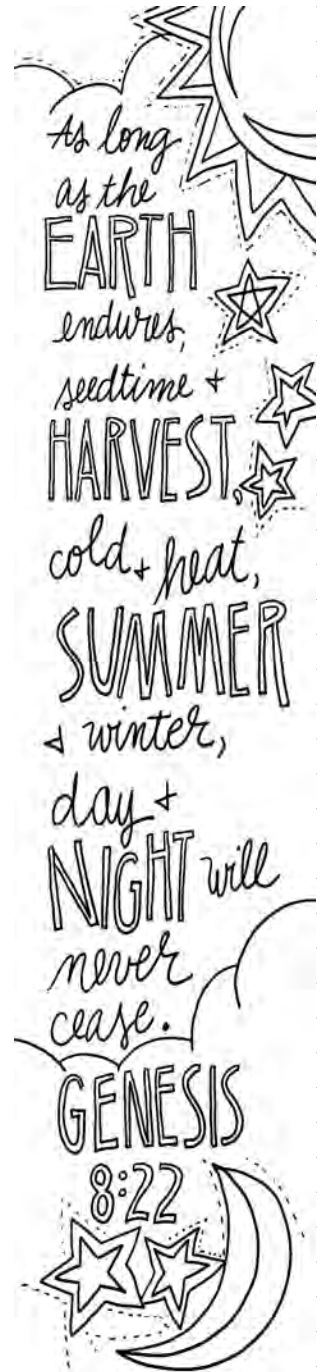 As long
as the
EARTH
endures,
seedtime +
HARVEST,
cold + heat,
SUMMER
+ winter,
day +
NIGHT will
never
cease.
GENESIS
8:22